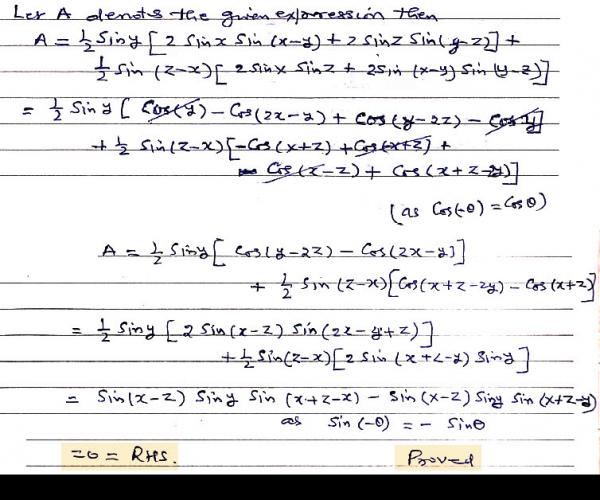 Let A denots the given expression then
A = 1/2 Siny [ 2 Sinx Sin (x-y) + 2 SinZ Sin(y-z)] +
1/2 Sin (Z-x) [ 2 Sinx Sinz + 2Sin (x-y) Sin (y-z)]
= 1/2 Siny [ Cos(y) - Cos(2x-y) + Cos(y-2Z) - Cos y]
+ 1/2 Sin(Z-x) [-Cos(x+z) + Cos(x-z) +
- Cos(x-z) + Cos(x+z-2y)]
(as Cos(-θ) = Cosθ)
A = 1/2 Siny [ Cos(y-2Z) - Cos(2x-y)]
+ 1/2 Sin (Z-x) [Cos(x+z-2y) - Cos(x+z)]
= 1/2 Siny [2 Sin(x-z) Sin(2x-y+z)]
+ 1/2 Sin(Z-x) [2 Sin (x+z-y) Siny]
= Sin(x-z) Siny Sin (x+z-x) - Sin(x-z) Siny Sin (x+z-y)
as Sin(-θ) = - Sinθ
=0 = RHS. Proved